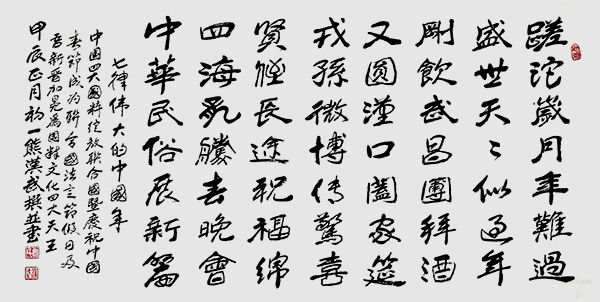 蹉沱歲月年難過
盛世天々似過年
剛飲武昌團拜酒
又圓漢口闔家筵
戎孫微博傳驚喜
賢侄長途祝福綿
四海騰去晚會
中華民俗展新篇
七律偉大的中國年
中国四大國粹綻放聯合國暨慶祝中國
春節成为聯合國法定節假日及
吾新晋加冕为國粹文化四大天王
甲辰正月初一熊漢武撰並書